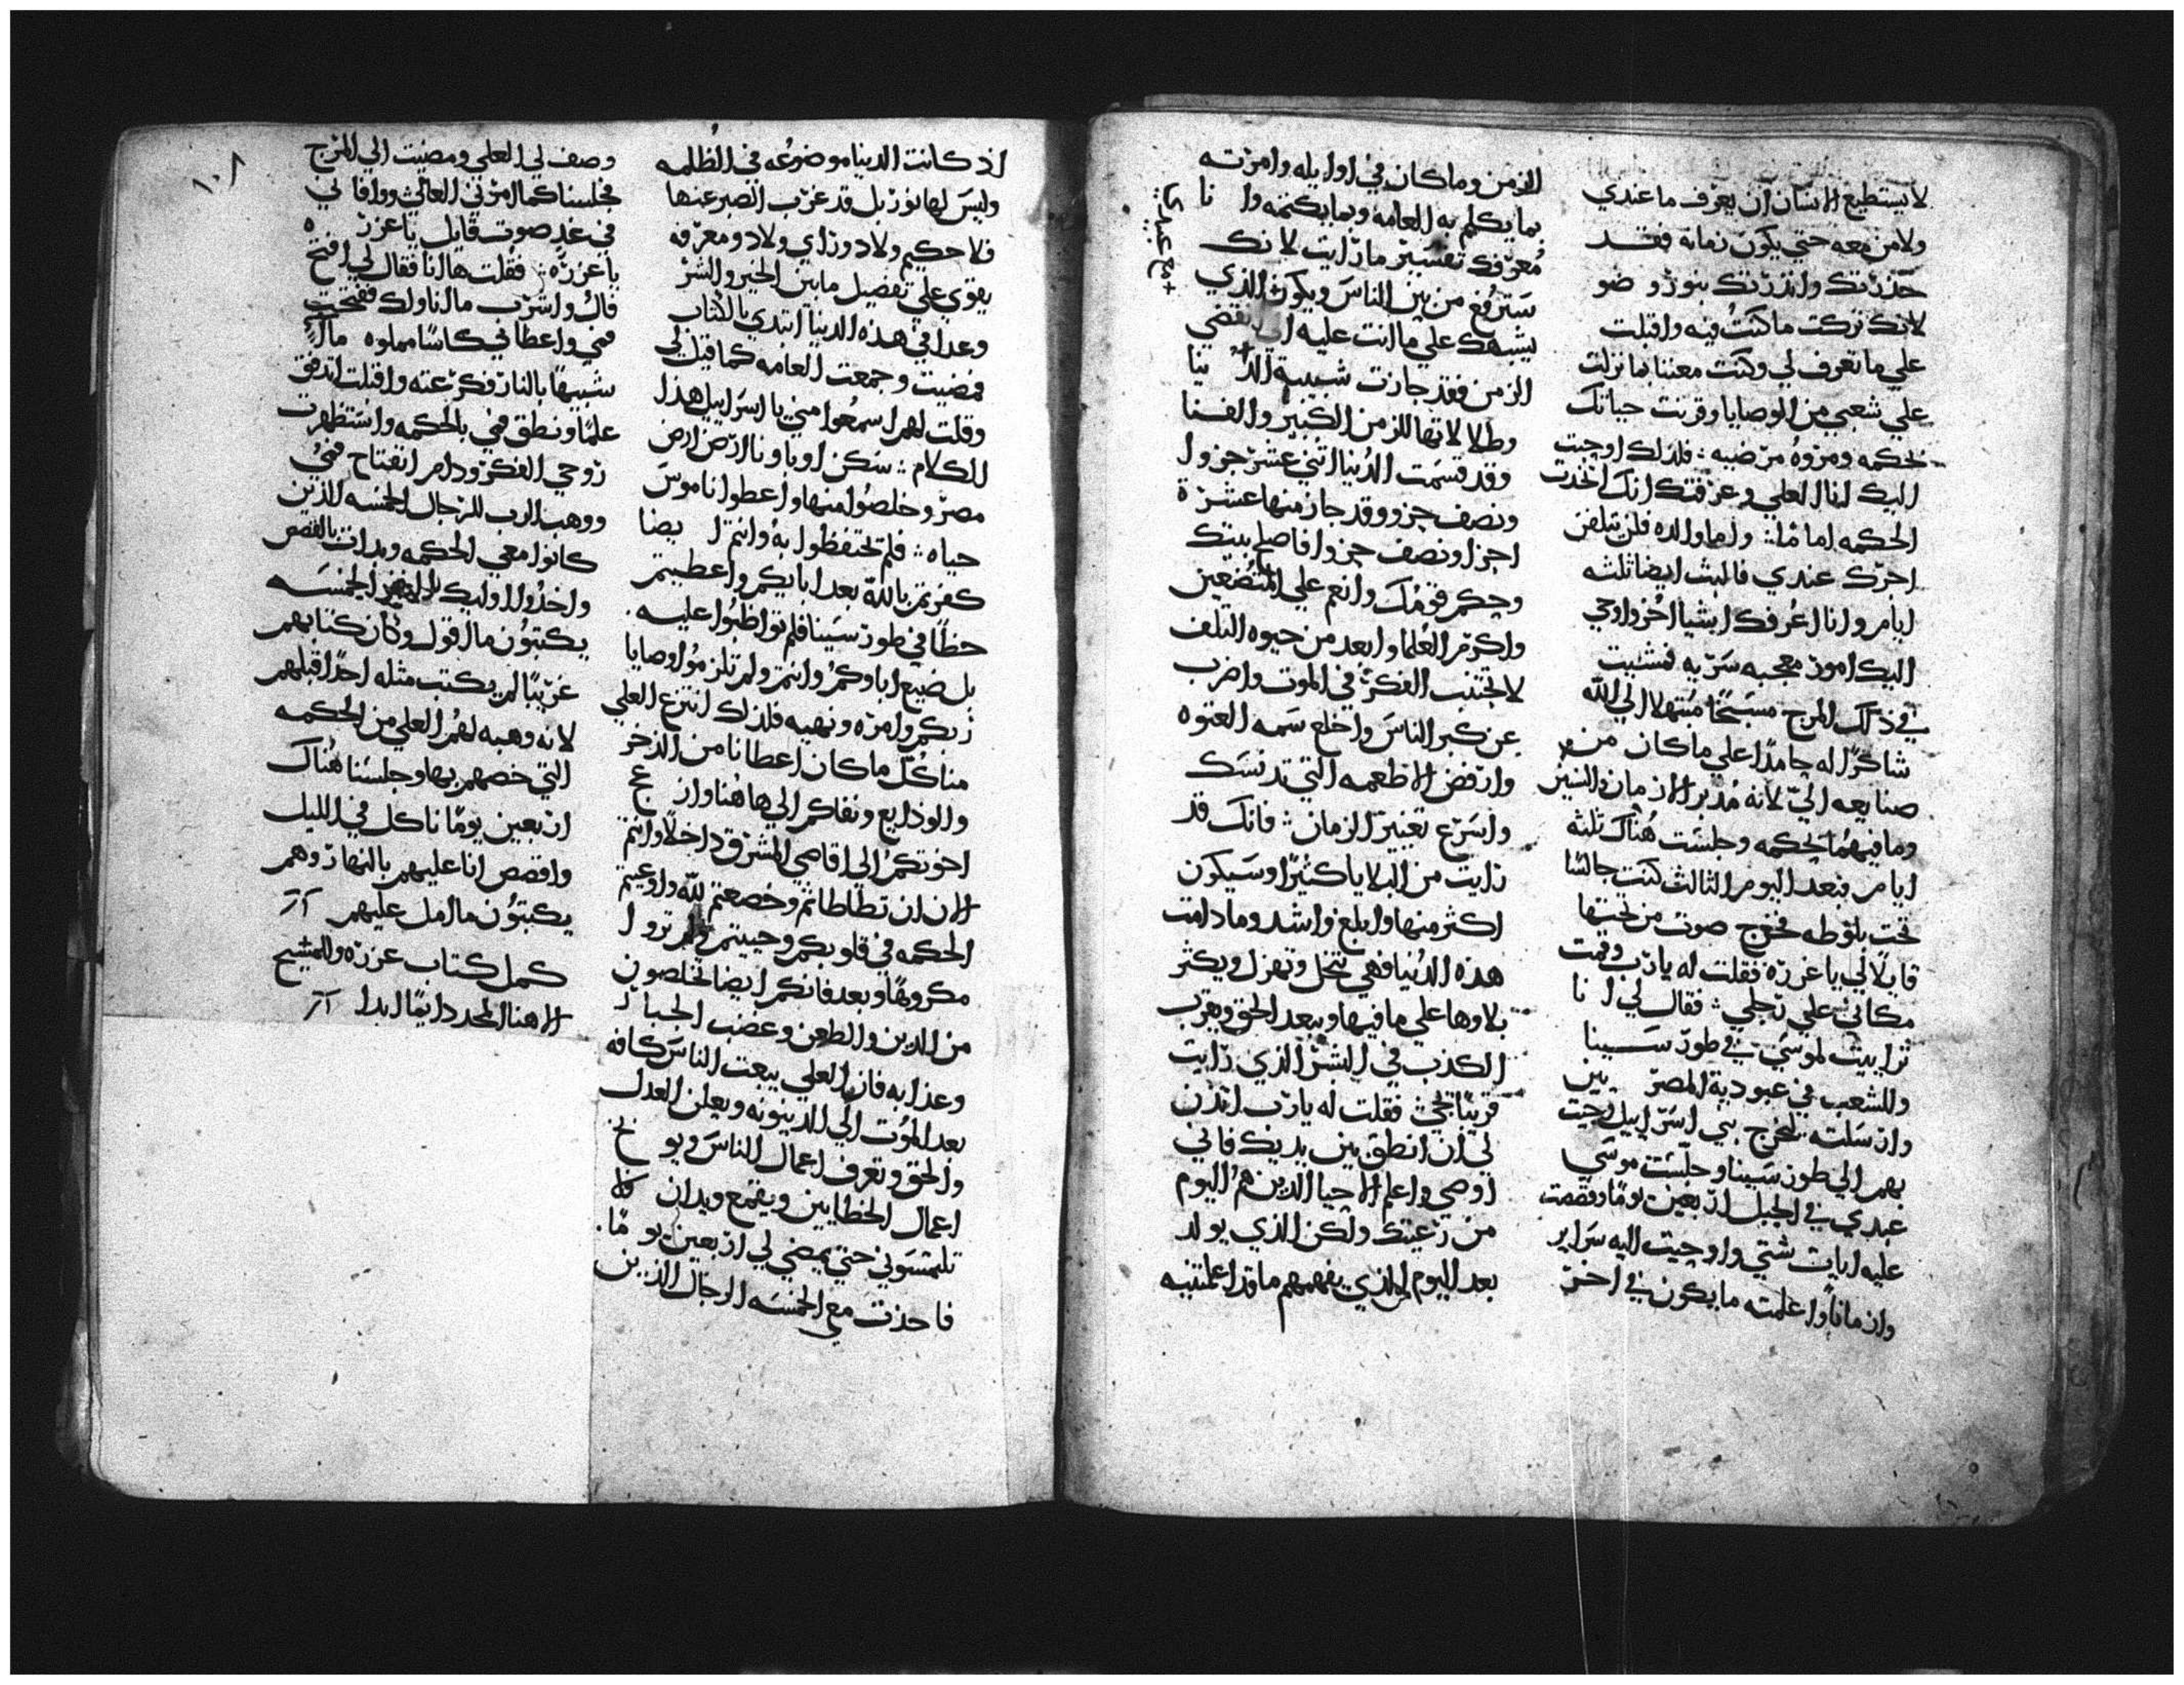 لايستطيع الانسان ان يعرف ما عندي
ولامن معه حتي يكون زمانه فقد
حذرتك وانذرتك بنور وضو
لانك تركت ما كنت فيه واقبلت
علي ما تعرف لي وكنت معتنا بما نزلت
علي شعبي من الوصايا وقرنت حياتك
بحكمه ومروه مرضيه فلذلك اوحيت
اليك انا العلي وعرفتك انك اتخذت
الحكمه اما واما والده فلن يتلفن
اجرك عندي فالبث ايضا ثلثه
ايام وانا اعرفك اشيا اخر واوحي
اليك امور معجبه سريه فمشيت
في ذلك المرج مسبحًا مبتهلا الي الله
شاكرًا له حامدًا علي ما كان من
صنايعه الي لانه مدبر الازمان والسنين
وما فيهما بحكمه وجلست هناك ثلثه
ايام فبعد اليوم الثالث كنت جالسًا
تحت بلوطه فخرج صوت من تحتها
قايلًا لي يا عزره فقلت له يارب وقمت
مكاني علي رجلي فقال لي انا
ترابيت لموسي في طور سينا
وللشعب في عبودية المصريين
وارسلته ليخرج بني اسراييل وجيت
بهم الي طور سينا وجلست موسي
عبدي في الجبل اربعين يومًا وقصصت
عليه ايات شتي واوحيت اليه سراير
وازمانًا واعلمته ما يكون في اخر
الزمن وما كان في اوايله وامرته
بما يكلم به العامه وبما يكتمه وانا
معرفك تفسير ما رايت لانك
سترفع من بين الناس ويكون الذي
يشبهك علي ما انت عليه الي تقضي
الزمن فقد جازت شبيبة الدنيا
وطلا لاتها للزمن الكبير والفنا
وقد قسمت الدنيا اثني عشر جزوا
ونصف جزو وقد جاز منها عشرة
اجزا ونصف جزوا فاصلح بيتك
وحكم قومك وانعم علي المتضعين
واكرم العلما وابعد من حيوه التلف
لا تجتنب الفكره في الموت واضرب
عن كبر الناس واخلع سمه العتوه
وارفض الاطعمه التي تدنسك
واسرع تغيير الزمان فانك قد
رايت من البلايا كثيرًا وسيكون
اكثر منها وابلغ واشد وما دامت
هذه الدنيا فهي تنحل وتهزل ويكثر
بلاوها علي ما فيها ويبعد الحق ويقرب
الكذب في البشر الذي رايت
قريبًا يجي فقلت له يارب ايذن
لي ان انطق بين يديك فاني
اوصي واعلم الاحيا الذين هم اليوم
من رعيتك ولكن الذي يولد
بعد اليوم من الذي يفهمهم ما قد اعلمتنيه
اذ كانت الدنيا موضوعه في الظلمه
وليس لها نور بل قد عزب الصبر عنها
فلا حكيم ولا ذو راي ولا ذو معرفه
يقوي علي تفصيل ما بين الخير والشر
وعدا في هذه الدنيا ابتدي بالكتاب
فمضيت وجمعت العامه كما قيل لي
وقلت لهم اسمعوا مني يا اسراييل هذا
الكلام سكن اوباونا ارض ارض
مصر وخلصوا منها واعطوا ناموس
حياه فلم تحتفظوا به وانتم ايضا
كفرتم بالله بعد ابايكم واعطيتم
حظًا في طور سينا فلم تواظبوا عليه
بل ضيع اباوكم وانتم ولم تلزموا وصايا
ربكم وامره ونهيه فلذلك انتزع العلي
منا كل ما كان اعطانا من الذخر
والودايع ونفاكم الي هاهنا وازعج
اخوتكم الي اقاصي المشرق داخلا وانتم
الان ان تطاطاتم وخضعتم لله واوعيتم
الحكمه في قلوبكم وحييتم ولم تروا
مكروهًا وبعد فانكم ايضا تخلصون
من الدين والطعن وغضب الجبار
وعذابه فان العلي يبعت الناس كافه
بعد الموت الي الدينونه ويعلن العدل
والحق وتعرف اعمال الناس ويوبخ
اعمال الخطايين ويقمع ويدان فلا
تلتمسوني حتي يمضي لي اربعين يومًا
فاخذت معي الخمسه الرجال الذين
١٠٨
وصف لي العلي ومضيت الي المرج
فجلسنا كما امرني العالي ووافاني
في غد صوت قايل يا عزره
يا عزره فقلت هاانا فقال لي افتح
فاك واشرب ما اناولك ففتحت
فمي واعطاني كاسًا مملوه مآًء
شبيهًا بالنار فكرعته واقبلت اتدفق
علمًا ونطق فمي بالحكمه واستظهرت
روحي الفكر ودام انفتاح فمي
ووهب الرب للرجال الخمسه الذين
كانوا معي الحكمه وبدات بالقصص
واخذوا اوليك النفر الخمسه
يكتبون ما اقول وكان كتابهم
غريبًا لم يكتب مثله احدًا قبلهم
لانه وهبه لهم العلي من الحكمه
التي خصهم بها وجلسنا هناك
اربعين يومًا ناكل في الليل
واقصص انا عليهم بالنهار وهم
يكتبون ما امل عليهم
كمل كتاب عزره وللمسيح
الاهنا المجد دايمًا ابدا